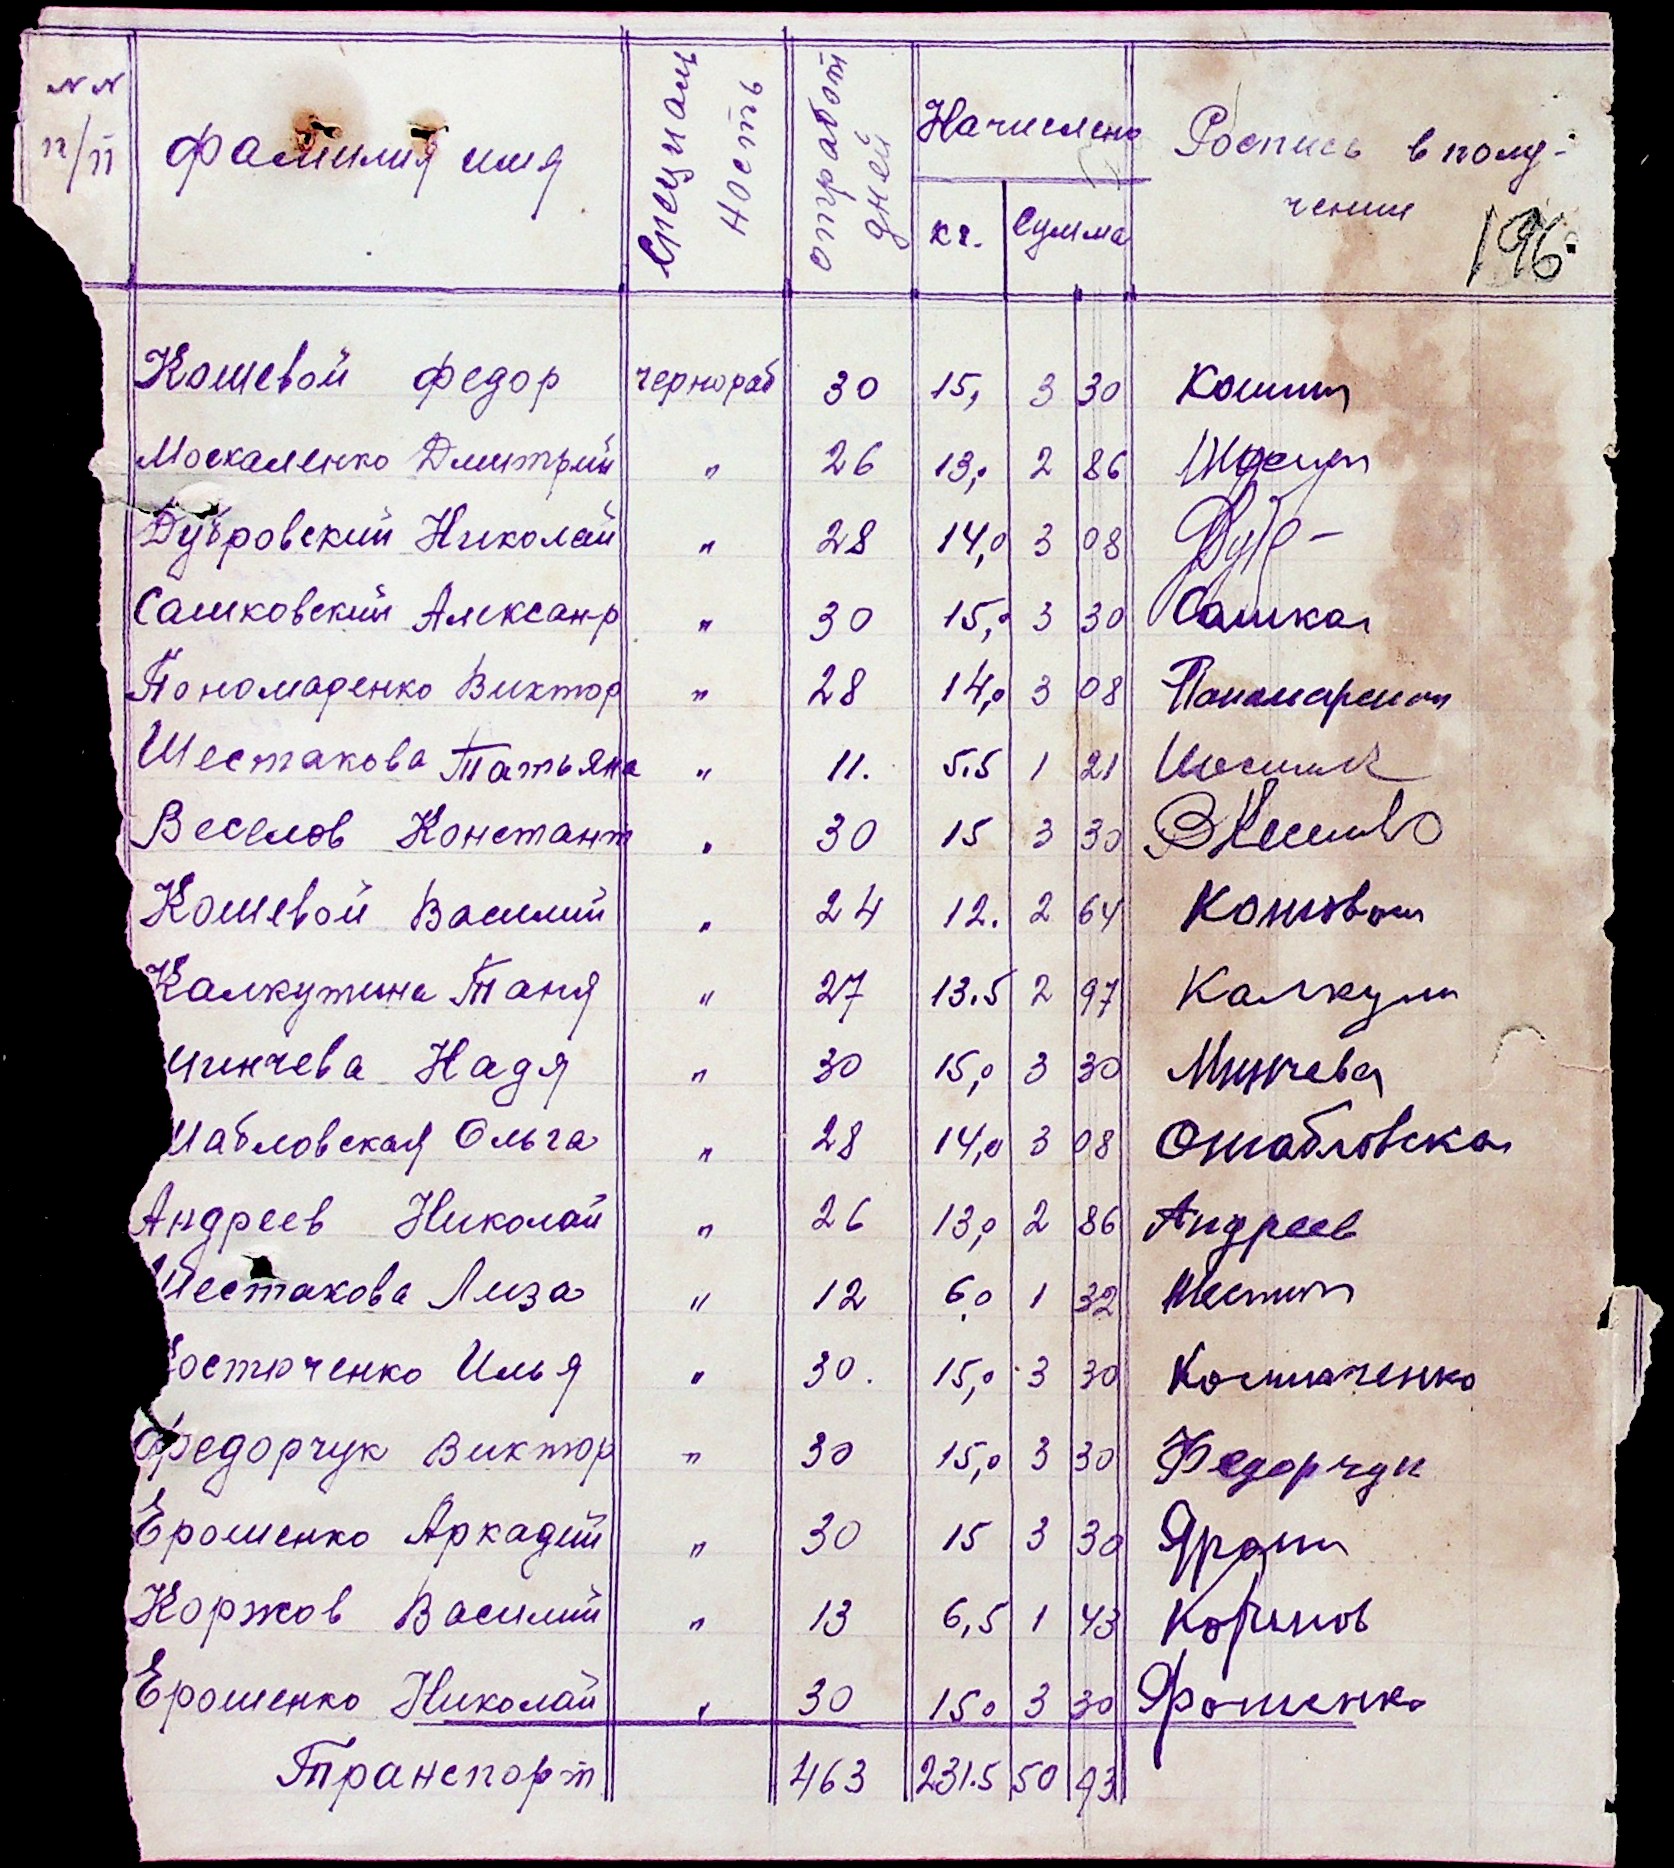 NN п/п фамилия имя Специальность отработ дней Начислено кг. Сумма Роспись в получении
196
Кошевой Федор чернораб 30 15, 3 30
Москаленко Дмитрий " 26 13,0 2 86
Дубровский Николай " 28 14,0 3 08 Дубр-
Сашковский Алексанр " 30 15,0 3 30 Сашков
Пономаренко Виктор " 28 14,0 3 08 Понамаренко
Шестакова Татьяна " 11. 5.5 1 21
Веселов Констант " 30 15 3 30
Кошевой Василий " 24 12. 2 64 Кошевой
Калкутина Таня " 27 13.5 2 97 Калкути
Минчева Надя " 30 15,0 3 30 Минчева
Шабловская Ольга " 28 14,0 3 08 Ошабловская
Андреев Николай " 26 13,0 2 86 Андреев
Шестакова Лиза " 12 6,0 1 32 Шестак
остюченко Илья " 30. 15,0 3 30
Федорчук Виктор " 30 15,0 3 30 Федорчук
Ерошенко Аркадий " 30 15 3 30 Ярош
Коржов Василий " 13 6,5 1 43 Коржов
Ерошенко Николай " 30 15 0 3 30 Ярошенко
Транспорт 463 231.5 50 93